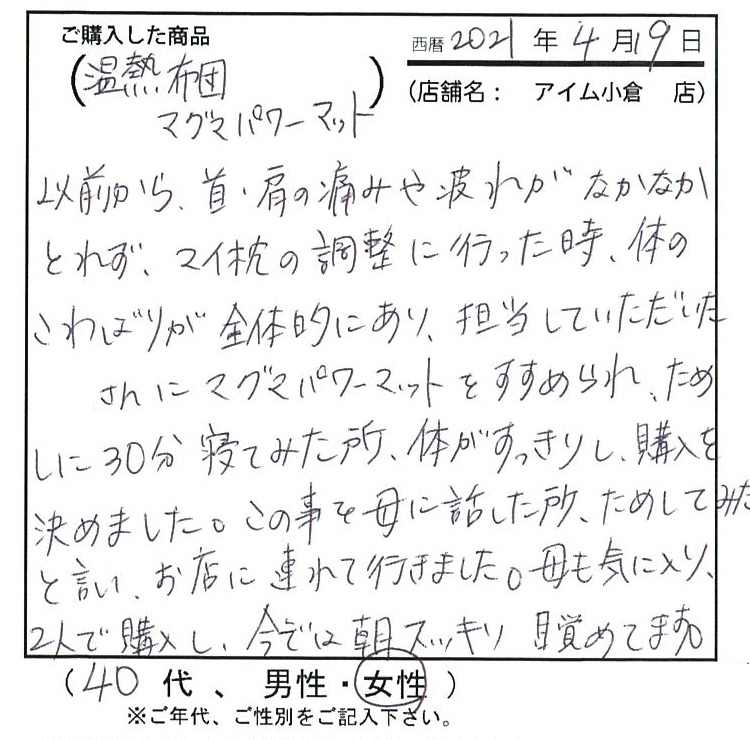 ご購入した商品
西暦 2021 年 4 月 19 日
(温熱布団
マグマパワーマット)
(店舗名: アイム小倉 店)
以前から、首・肩の痛みや疲れがなかなか
とれず、マイ枕の調整に行った時、体の
こわばりが全体的にあり、担当していただいた
さんにマグマパワーマットをすすめられ、ため
しに30分寝てみた所、体がすっきりし、購入を
決めました。この事を母に話した所、ためしてみた
と言い、お店に連れて行きました。母も気に入り、
2人で購入し、今では朝スッキリ目覚めてます。
(40代、男性・女性)
※ご年代、ご性別をご記入下さい。